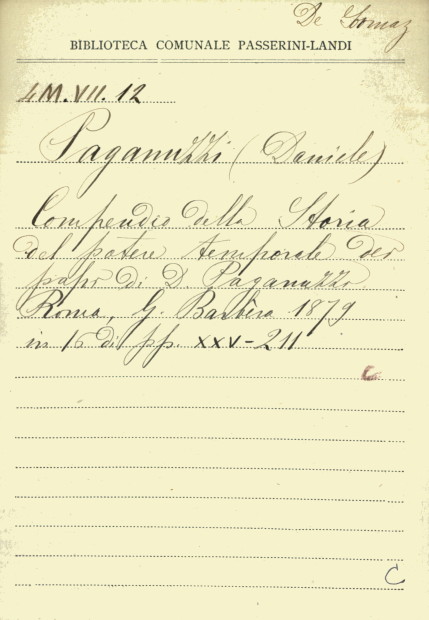 De Sornaz
BIBLIOTECA COMUNALE PASSERINI-LANDI
4M.VII.12
Paganuzzi (Daniele)
Compendio della Storia
del potere temporale dei
papi di D. Paganuzzi
Roma, G. Barbèra 1879
in 16 di pp. XXV-211
C
C